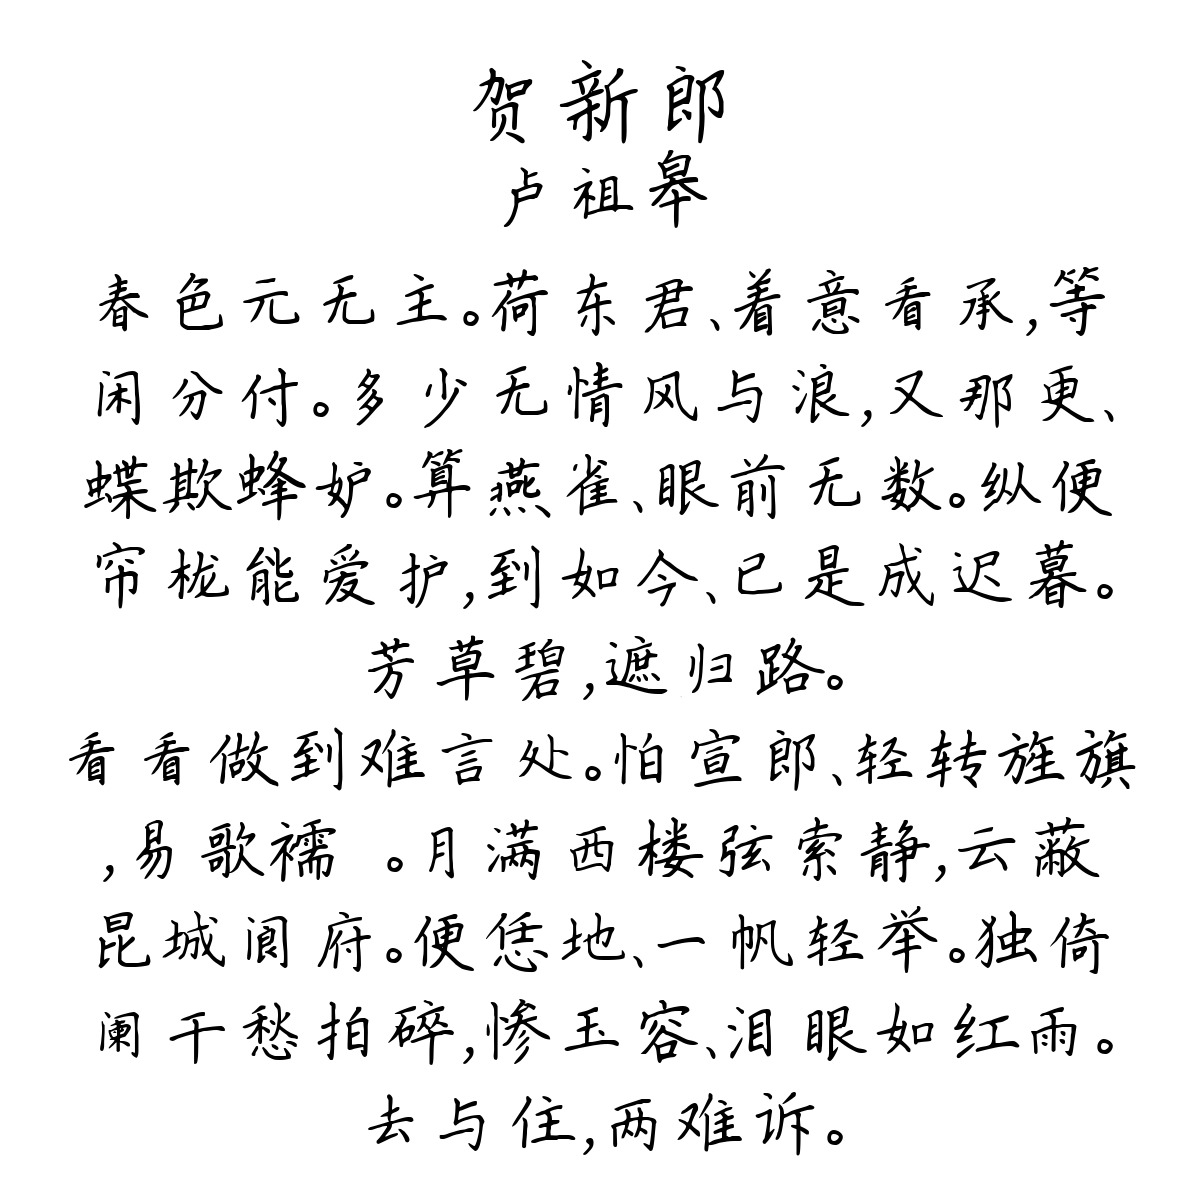 贺新郎
卢祖皋
春色元无主。荷东君、着意看承,等
闲分付。多少无情风与浪,又那更、
蝶欺蜂妒。算燕雀、眼前无数。纵便
帘栊能爱护,到如今、已是成迟暮。
芳草碧,遮归路。
看看做到难言处。怕宣郎、轻转旌旗
,易歌襦 。月满西楼弦索静,云蔽
昆城阆府。便恁地、一帆轻举。独倚
阑干愁拍碎,惨玉容、泪眼如红雨。
去与住,两难诉。